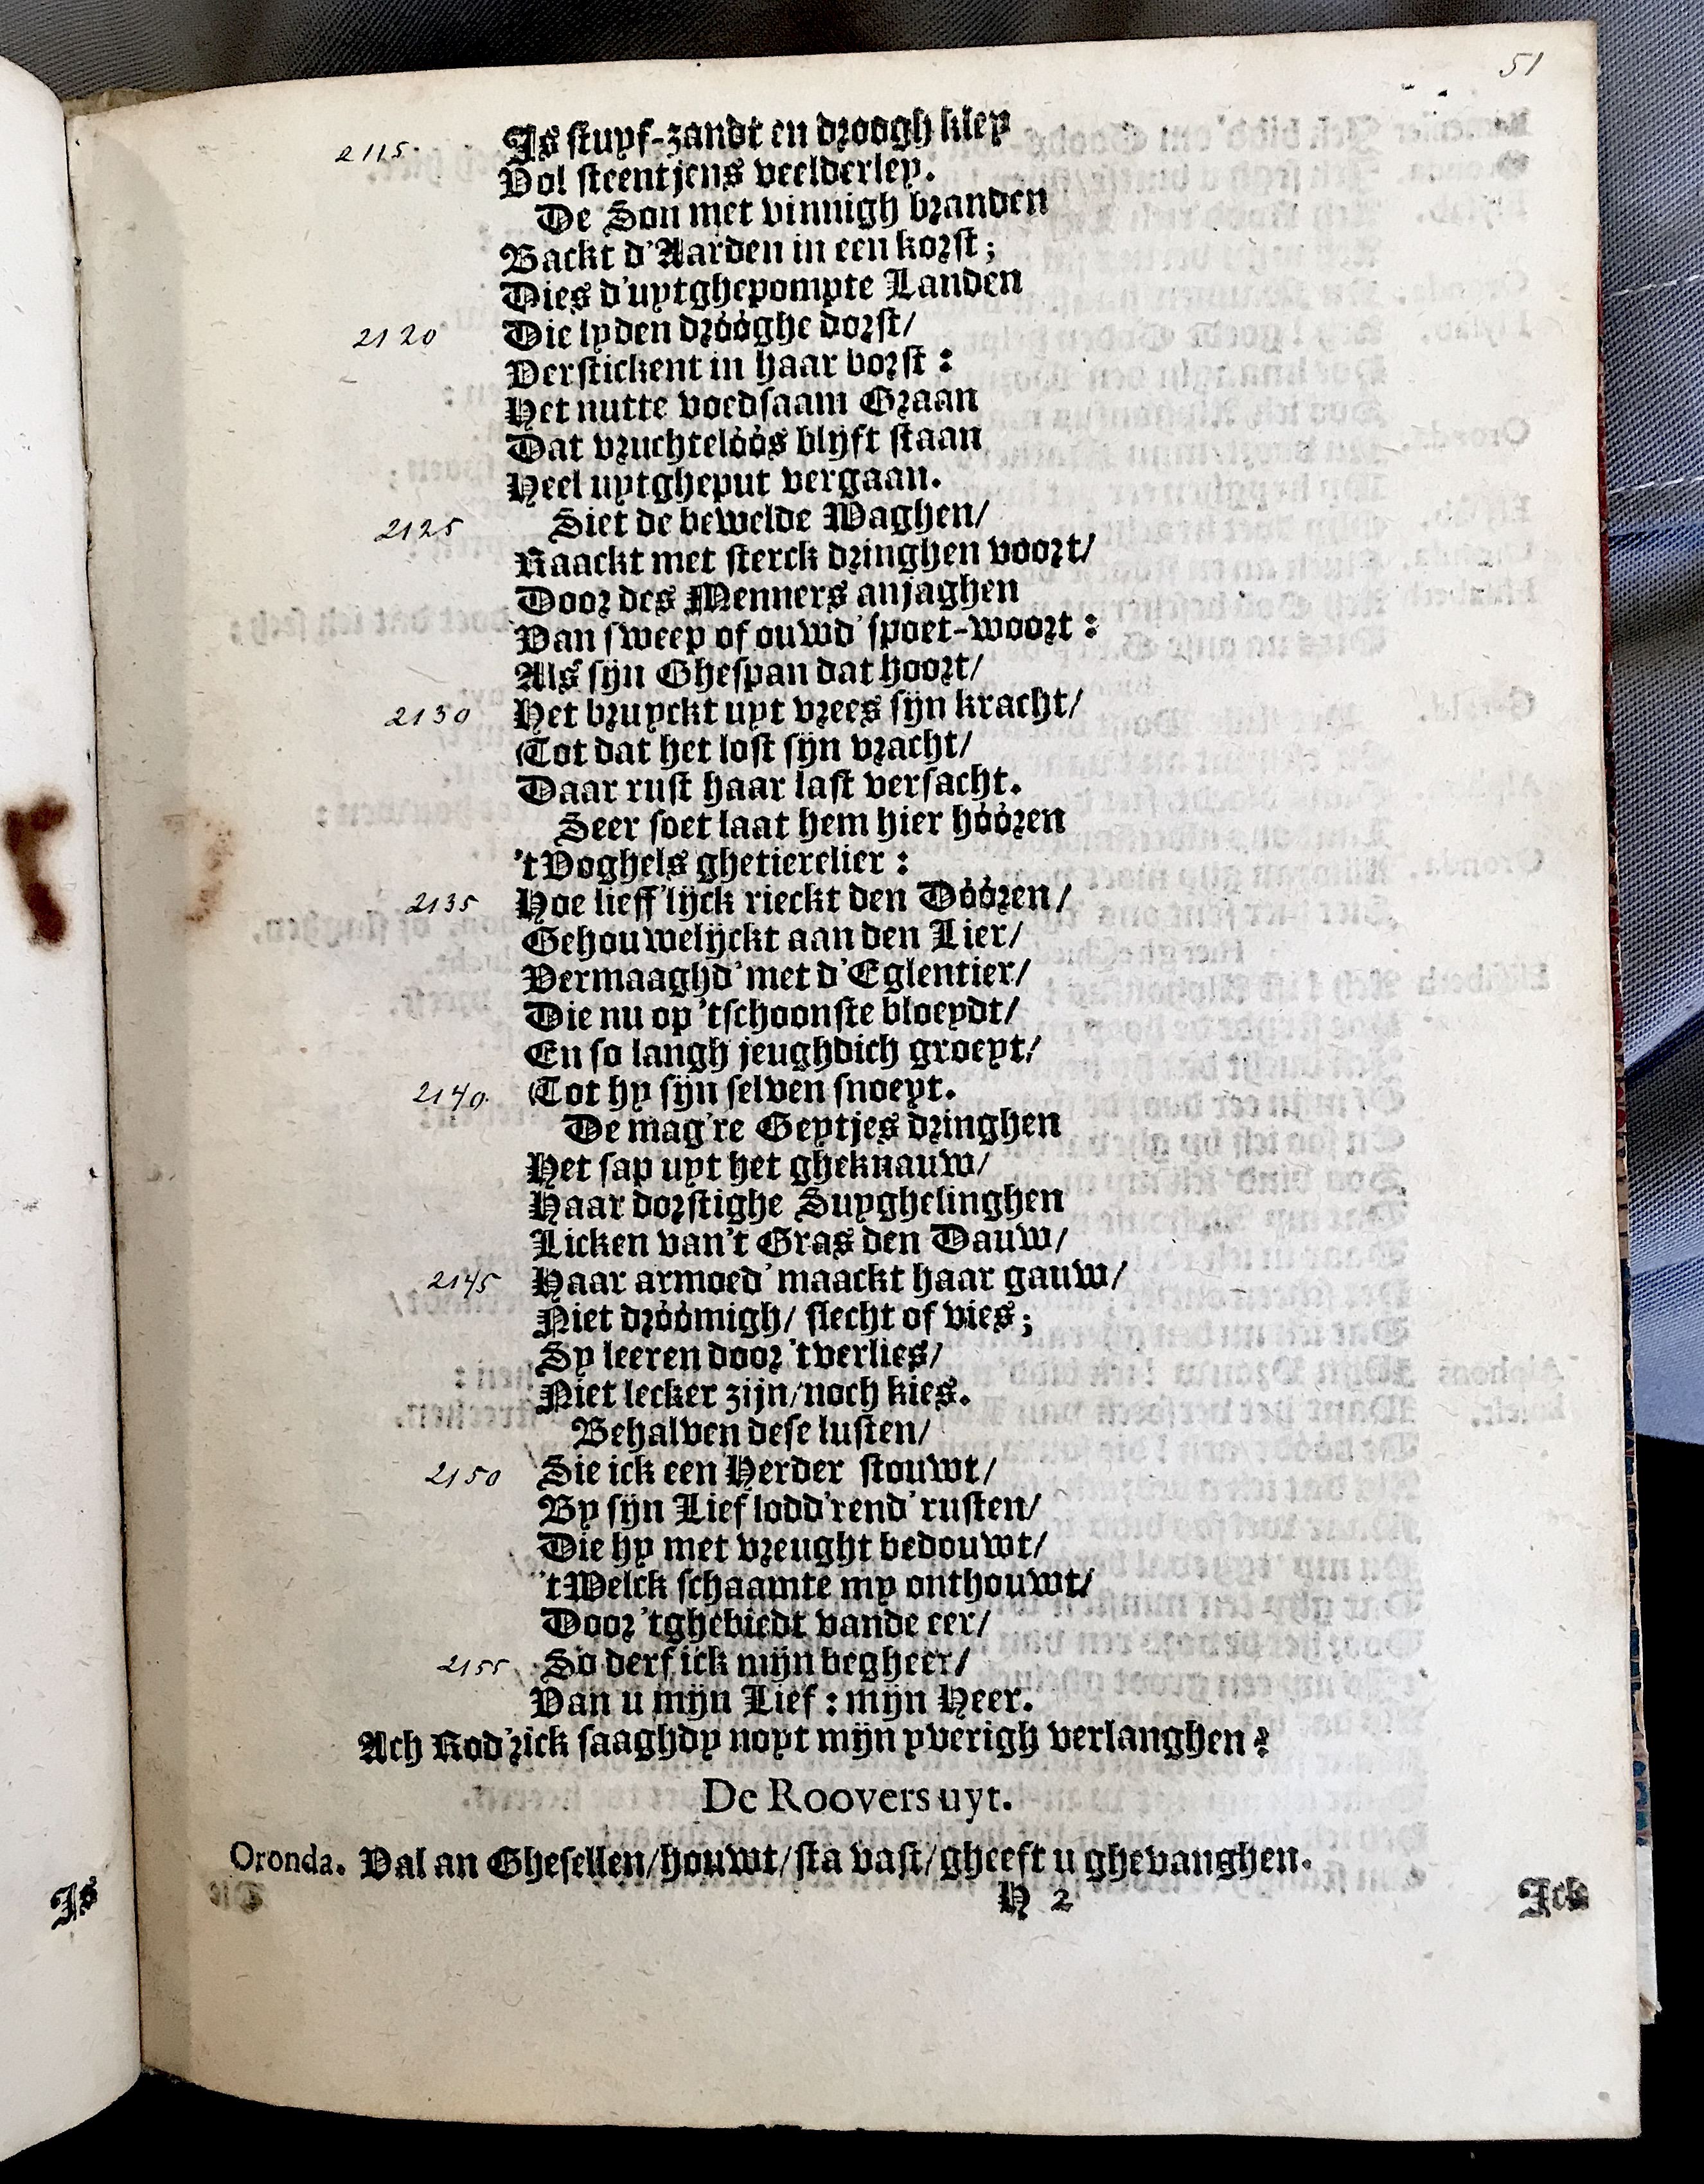 51
2115. Is stuyf-zandt en droogh kley
Vol steentjens veelderley.
De Son met vinnigh branden
Backt d'Aarden in een korst;
Dies d'uytghepompte Landen
2120 Die lyden dróóghe dorst/
Verstickent in haar borst:
Het nutte voedsaam Graan
Dat vruchtelóós blijft staan
Heel uytgheput vergaan.
2125 Siet de bewelde Waghen/
Raackt met sterck dringhen voort/
Door des Menners anjaghen
Van sweep of ouwd' spoet-woort:
Als sijn Ghespan dat hoort/
2130 Het bruyckt uyt vrees sijn kracht/
Tot dat het lost sijn vracht/
Daar rust haar last versacht.
Seer soet laat hem hier hóóren
't Voghels ghetierelier:
2135 Hoe lieff'lijck rieckt den Dóóren/
Gehouwelijckt aan den Lier/
Vermaaghd' met d'Eglentier/
Die nu op 'tschoonste bloeydt/
En so langh jeughdich groeyt/
2140. Tot hy sijn selven snoeyt.
De mag're Geytjes dringhen
Het sap uyt het gheknauw/
Haar dorstighe Suyghelinghen
Licken van't Gras den Dauw/
2145 Haar armoed' maackt haar gauw/
Niet dróómigh/ slecht of vies;
Sy leeren door 'tverlies/
Niet lecker zijn/noch kies.
Behalven dese lusten/
2150 Sie ick een Herder stouwt/
By sijn Lief lodd'rend' rusten/
Die hy met vreught bedouwt/
't Welck schaamte my onthouwt/
Door 'tghebiedt vande eer/
2155. So derf ick mijn begheer/
Van u mijn Lief: mijn Heer.
Ach Rod'rick saaghdy noyt mijn yverigh verlanghen?
De Roovers uyt.
Oronda. Val an Ghesellen/houwt/sta vast/gheeft u ghevanghen.
H 2
Ick
Is